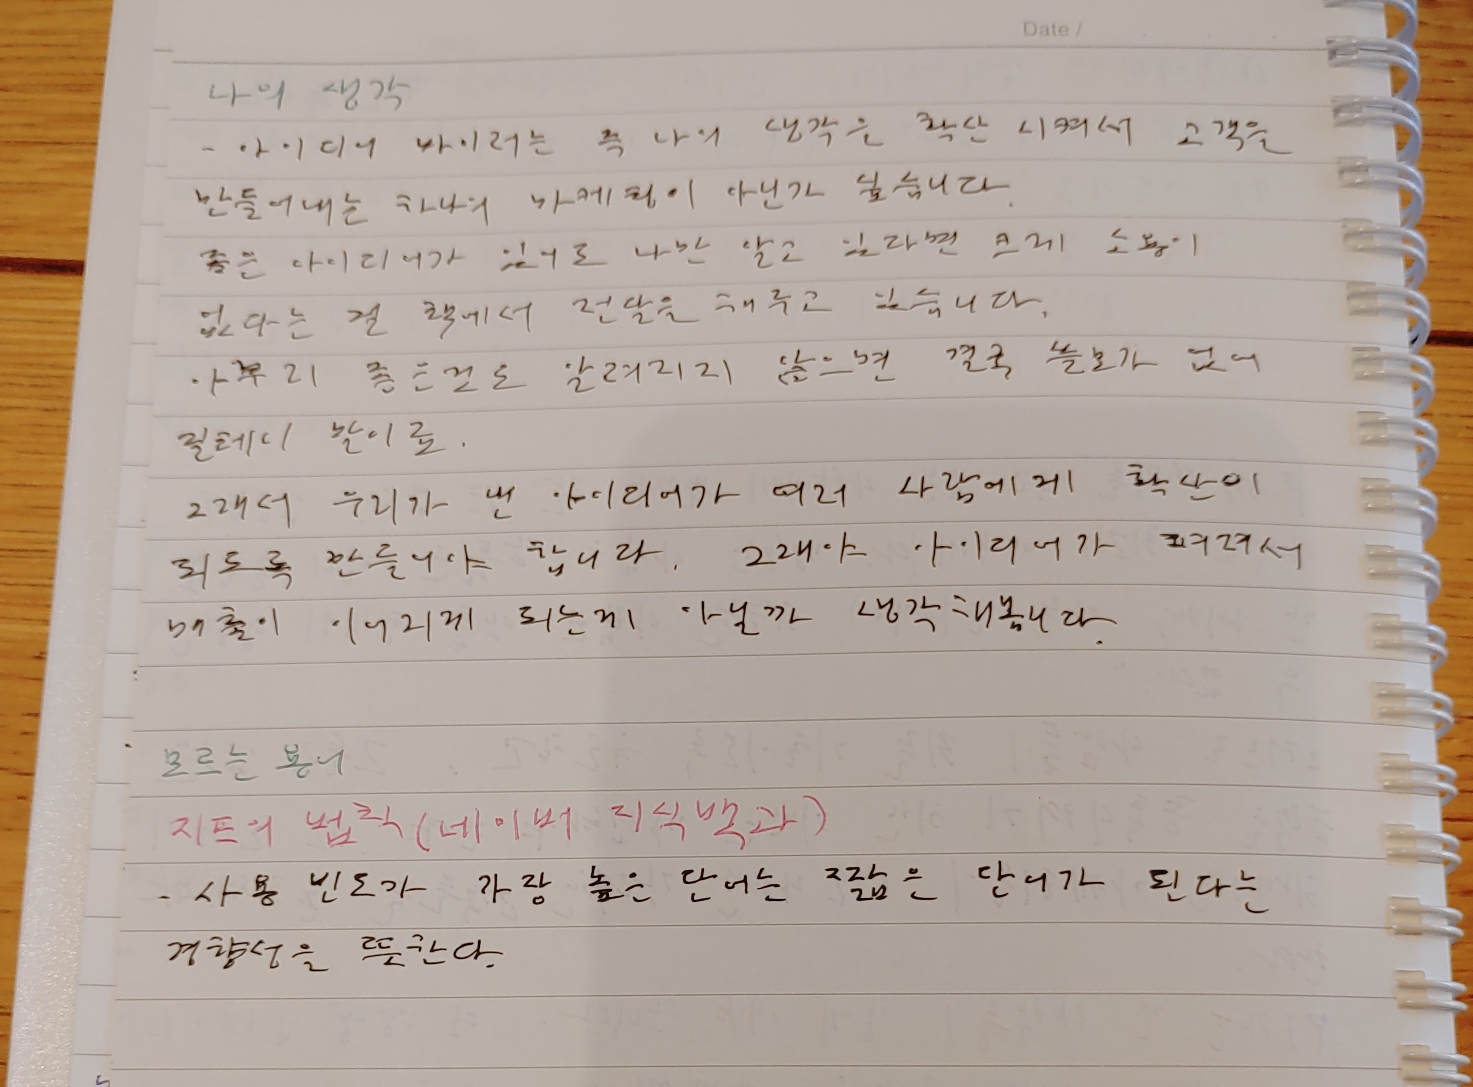 Date /
나의 생각
- 아이디어 바이러는 즉 나의 생각은 확산 시켜서 고객을
만들어내는 하나의 마케팅이 아닌가 싶습니다.
좋은 아이디어가 있어도 나만 알고 있다면 크게 소용이
없다는 걸 책에서 전달을 해주고 있습니다.
아무리 좋은것도 알려지지 않으면 결국 쓸모가 없어
질테니 말이죠.
그래서 우리가 낸 아이디어가 여러 사람에게 확산이
되도록 만들어야 합니다. 그래야 아이디어가 퍼져서
매출이 이어지게 되는게 아닐까 생각해봅니다.
모르는 용어
지프의 법칙(네이버 지식백과)
- 사용 빈도가 가장 높은 단어는 짧은 단어가 된다는
경향성을 뜻한다.